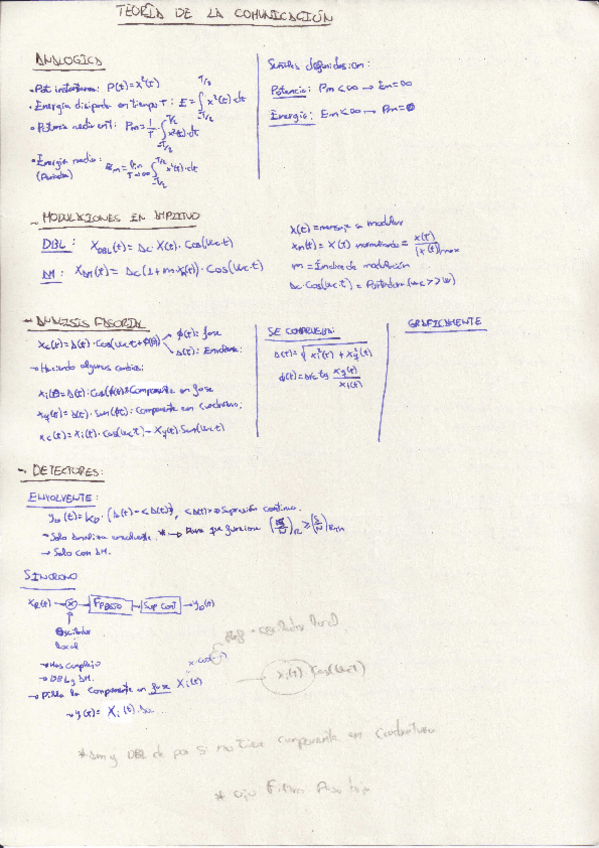 TEORÍA DE LA COMUNICACIÓN
ANALOGICA
• Pot. instantanea: P(t) = x²(t)
• Energía disipada en tiempo T: E = ∫_{-T/2}^{T/2} x²(t)·dt
• Potencia media en T: Pm = 1/T ∫_{-T/2}^{T/2} x²(t)·dt
• Energía media: Em = lim_{T→∞} ∫_{-T/2}^{T/2} x²(t)·dt
Señales definidas en:
Potencia: Pm < ∞ → Em = ∞
Energía: Em < ∞ → Pm = 0
- MODULACIONES EN AMPLITUD
DBL: X_DBL(t) = Ac·X(t)·Cos(ωc·t)
AM: X_AM(t) = Ac(1+m·Xn(t))·Cos(ωc·t)
X(t) = mensaje a modular
Xn(t) = X(t) normalizada = X(t)/|X(t)|max
m = Índice de modulación
Ac·Cos(ωc·t) = Portadora (ωc >> W)
- ANALISIS FASORIAL
Xc(t) = A(t)·Cos(ωc·t+φ(t))
φ(t): fase
A(t): Envolvente
→ Haciendo algunos cambios:
Xi(t) = A(t)·Cos(φ(t)): Componente en fase
Xq(t) = A(t)·Sen(φ(t)): Componente en cuadratura;
Xc(t) = Xi(t)·Cos(ωc·t) - Xq(t)·Sen(ωc·t)
SE COMPRUEBA:
A(t) = √(Xi²(t) + Xq²(t))
φ(t) = Arc tg Xq(t)/Xi(t)
GRAFICAMENTE
- DETECTORES:
ENVOLVENTE:
y_D(t) = K_D·(A(t) - <A(t)>), <A(t)> → Supresión continua.
→ Solo detecta envolvente. * → Para que funcione (S/N)_R ≥ (S/N)_Rth
→ Solo con AM.
SINCRONO
X_R(t) → ⊗ → F PBAJO → Sup Cont → y_D(t)
Oscilador
Local
→ Mas complejo
→ DBL y AM.
→ Pilla la Componente en fase Xi(t)
→ y(t) = Xi(t)·
oscilador local
Xi(t) Cos(ωc·t)
* AM y DBL de por si no tiene componente en cuadratura
* ojo Filtro Paso bajo